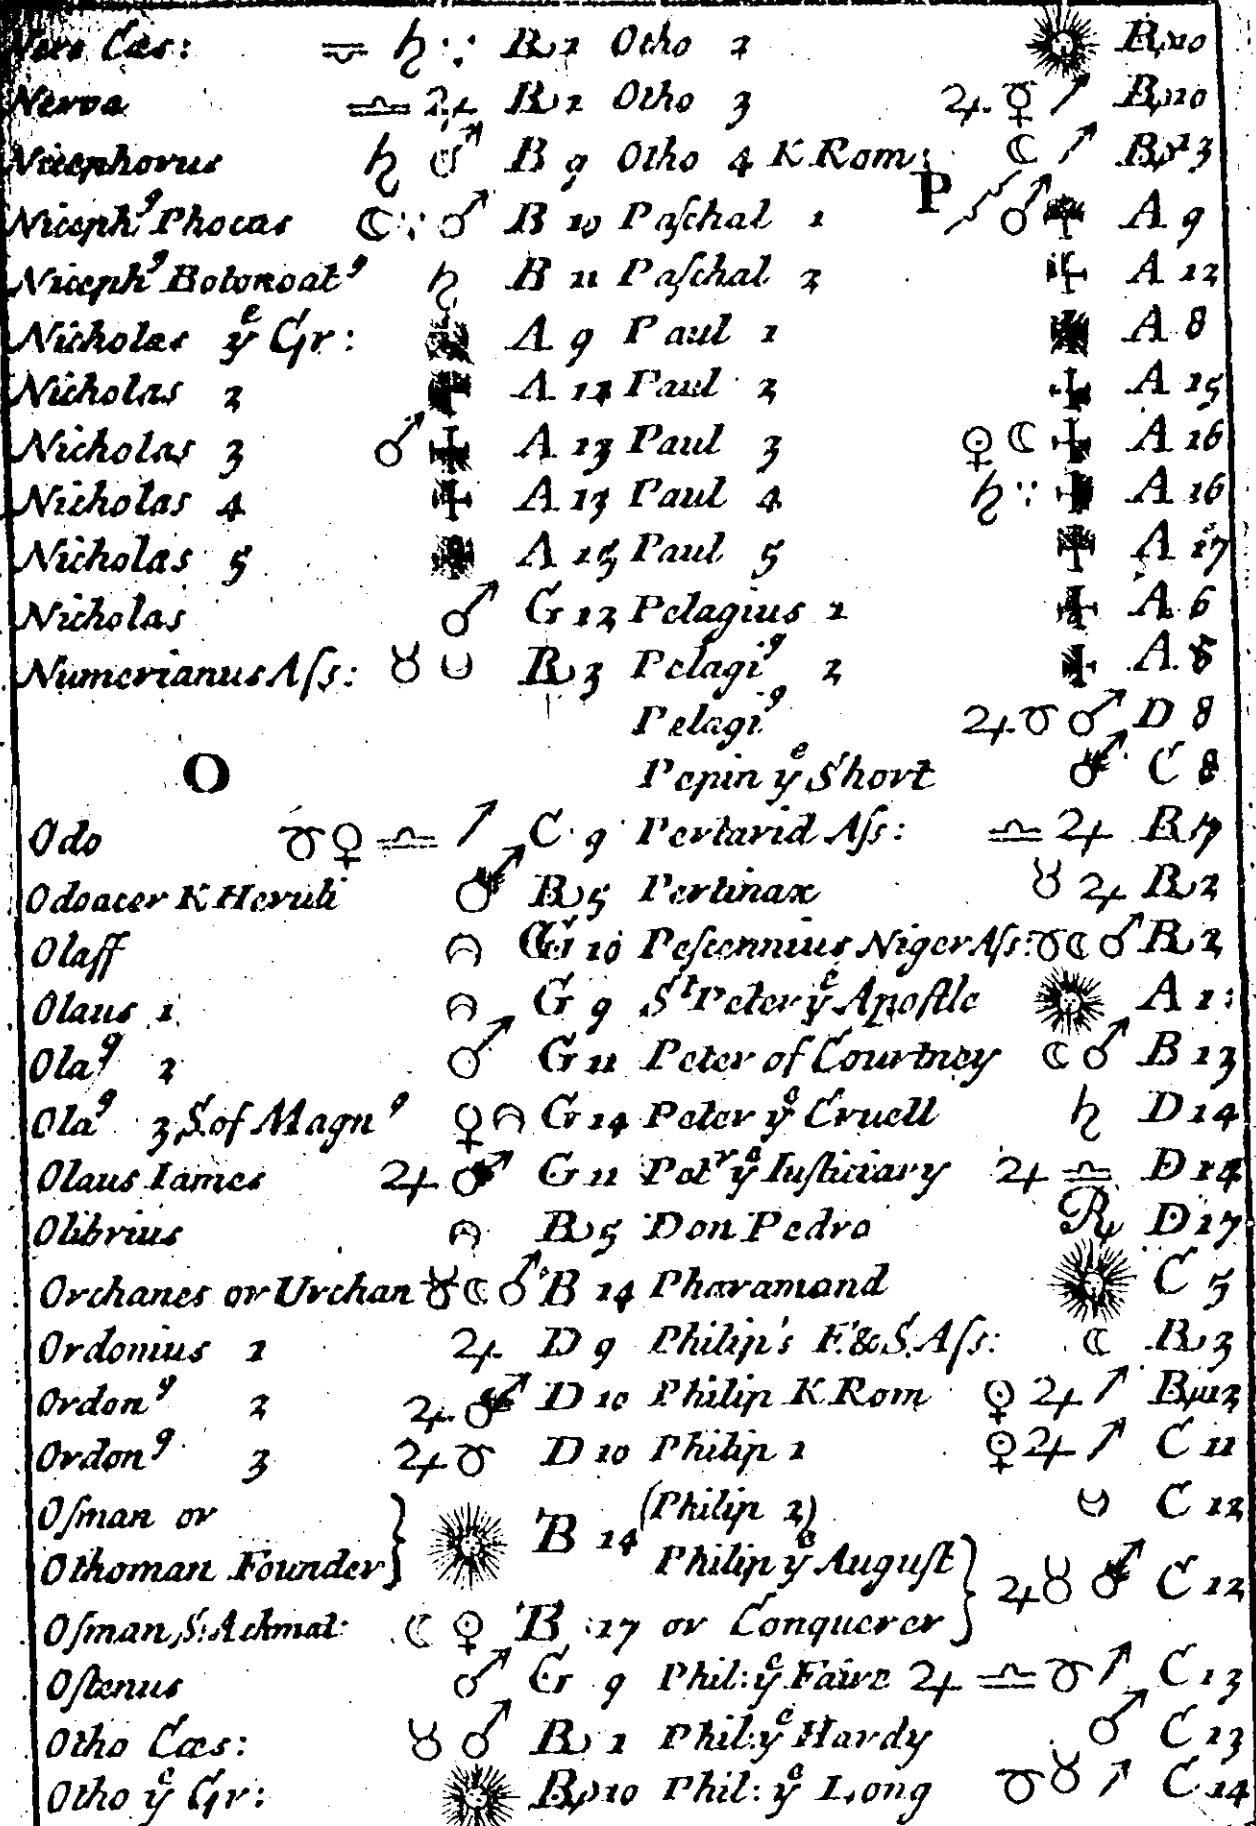 Nero Cæs: ♎ ♄ ∵ B 1
Nerva ♎ ♃ B 2
Nicephorus ♄ ♂ B 9
Niceph⁹ Phocas ☾ ∵ ♂ B 10
Niceph⁹ Botonoat⁹ ♄ B 11
Nicholas yᵉ Gr: ✠ A 9
Nicholas 2 ✠ A 11
Nicholas 3 ♂ ✠ A 13
Nicholas 4 ✠ A 13
Nicholas 5 ✠ A 15
Nicholas ♂ G 12
Numerianus Aſs: ♉ B 3
O
Odo ♈ ♀ ♎ ↗ C 9
Odoacer K Heruli ♂ B 5
Olaff G 10
Olaus 1 G 9
Ola⁹ 2 ♂ G 11
Ola⁹ 3, S. of Magn⁹ ♀ G 14
Olaus Iames ♃ ♂ G 11
Olibrius B 5
Orchanes or Urchan ♉ ☾ ♂ B 14
Ordonius 1 ♃ D 9
Ordon⁹ 2 ♃ ♂ D 10
Ordon⁹ 3 ♃ ♈ D 10
Oſman or
Othoman Founder } ☉ B 14
Oſman, S: Achmat: ☾ ♀ B 17
Oſtenus ♂ G 9
Otho Cæs: ♉ ♂ B 1
Otho yᵉ Gr: ☉ B 10
Otho 2 ☉ B 10
Otho 3 ♃ ☿ ↗ B 10
Otho 4 K Rom: ☾ ↗ B 13
P
Paſchal 1 ♂ ✠ A 9
Paſchal 2 ✠ A 12
Paul 1 ✠ A 8
Paul 2 ✠ A 15
Paul 3 ♀ ☾ ✠ A 16
Paul 4 ♄ ∵ ✠ A 16
Paul 5 ✠ A 17
Pelagius 1 ✠ A 6
Pelagi⁹ 2 ✠ A
Pelagi⁹ ♃ ♈ ♂ D 8
Pepin yᵉ Short ♂ C 8
Pertarid Aſs: ♎ ♃ B 7
Pertinax ♉ ♃ B 2
Peſcennius Niger Aſs: ♈ ☾ ♂ B 2
Sᵗ Peter yᵉ Apoſtle ☉ A 1:
Peter of Courtney ☾ ♂ B 13
Peter yᵉ Cruell ♄ D 14
Petʳ yᵉ Iuſticiary ♃ ♎ D 14
Don Pedro ℞ D 17
Pharamond ☉ C 5
Philip's F. & S. Aſs: ☾ B 3
Philip K Rom ♀ ♃ ↗ B 12
Philip 1 ♀ ♃ ↗ C 11
(Philip 2) C 12
Philip yᵉ Auguſt
or Conquerer } ♃ ♉ ♂ C 12
Phil: yᵉ Faire ♃ ♎ ♈ ↗ C 13
Phil: yᵉ Hardy ♂ C 13
Phil: yᵉ Long ♈ ♉ ↗ C 14